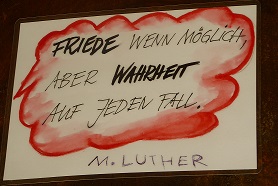 FRIEDE WENN MÖGLICH,
ABER WAHRHEIT
AUF JEDEN FALL.
M. LUTHER